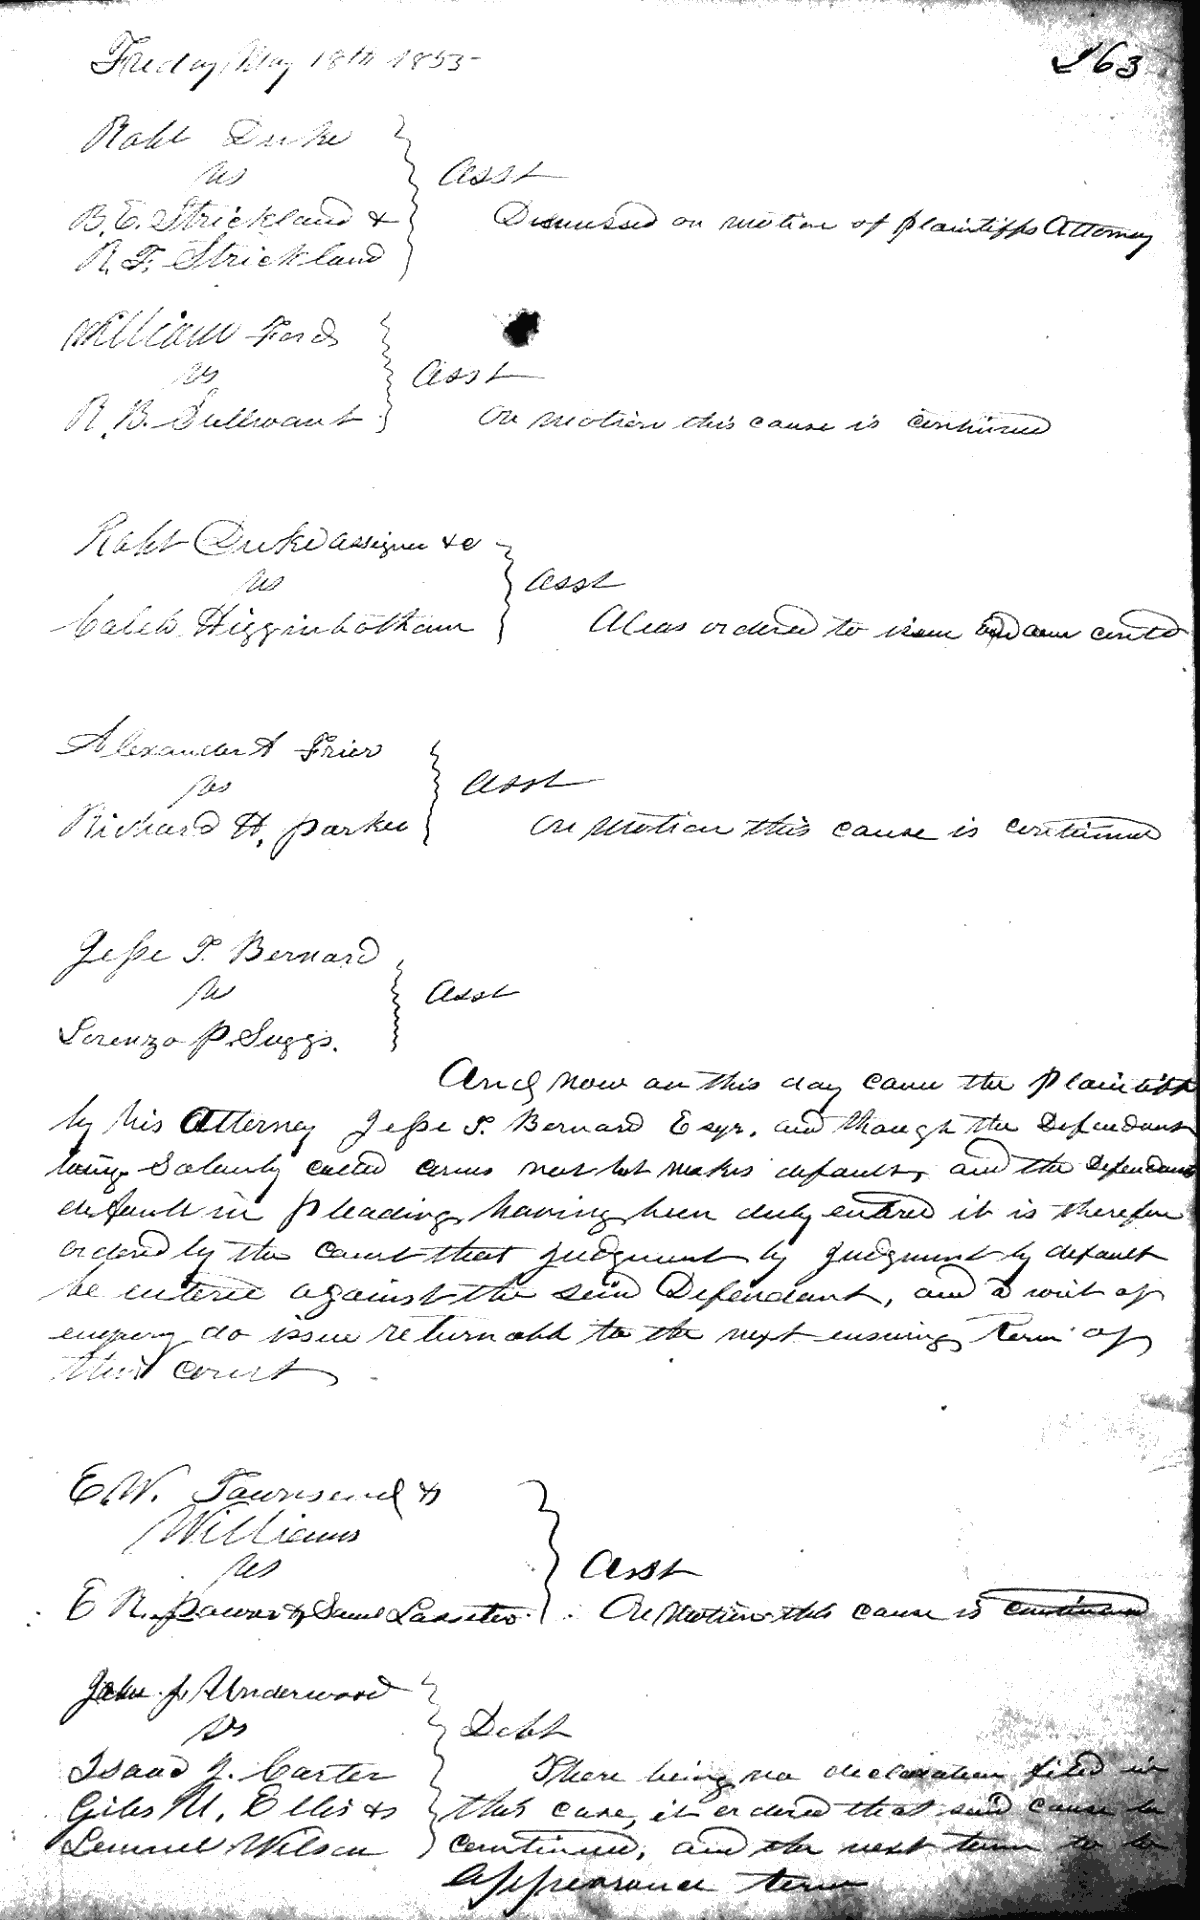 Friday May 18th 1855
263
Robt Duke
vs
B. E. Strickland &
R. F. Strickland
Asst
Dismissed on motion of plaintiffs Attorney
William Ford
vs
R. B. Sullivant
Asst
On motion this cause is continued
Robt Duke assignee &c
vs
Caleb Higginbotham
Asst
Alias ordered to issue and cause contd
Alexander A Frier
vs
Richard H. Parker
Asst
On motion this cause is continued
Jesse T. Bernard
vs
Lorenzo P. Suggs.
Asst
And now on this day came the plaintiff
by his Attorney Jesse T. Bernard Esqr. and though the Defendant
being Solemly called comes not but makes default, and the Defendants
default in pleading having been duly entered it is therefore
ordered by the court that judgment by judgment by default
be entered against the said Defendant, and a writ of
enquiry do issue returnable to the next ensuing Term of
this court
E. W. Townsend &
Williams
vs
E R. & Saml Lassiter
Asst
On motion this cause is continued
John J. Underwood
vs
Isaac J. Carter
Giles U. Ellis &
Lemuel Wilson
Debt
There being no declaration filed in
this case, it ordered that said cause be
continued, and the next term to be
appearance term